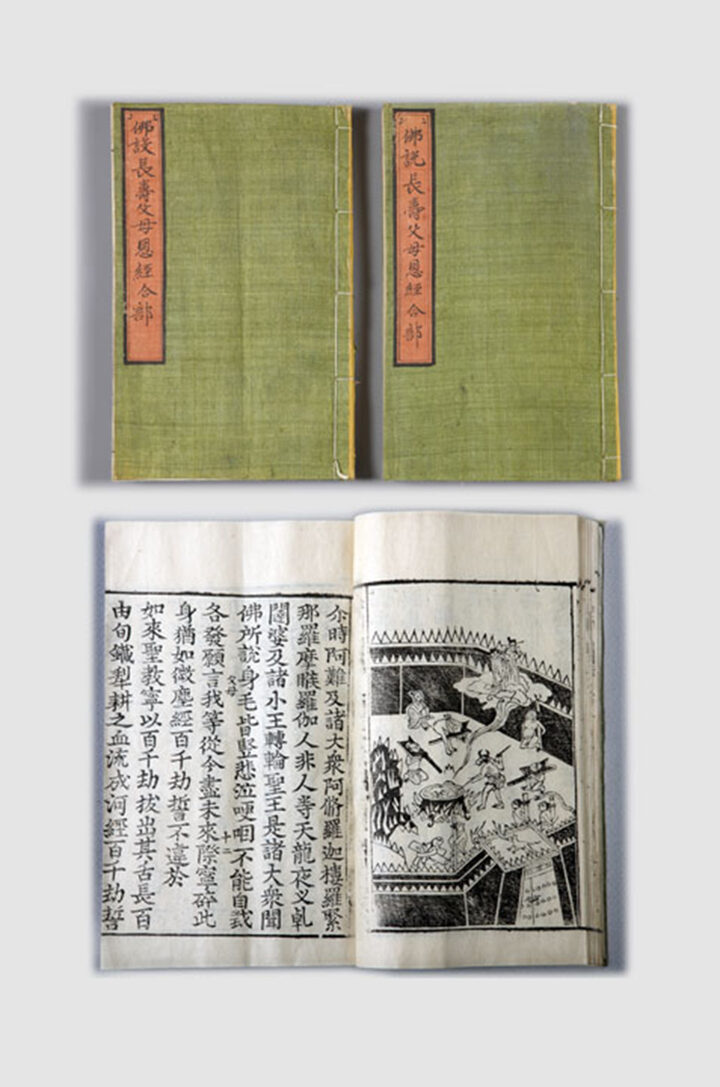 佛說長壽父母恩經合部
佛説長壽父母恩經合部
尒時阿難及諸大衆阿脩羅迦樓羅緊
那羅摩睺羅伽人非人等天龍夜叉乹
闥婆及諸小王轉輪聖王是諸大衆聞
佛所說身毛皆竪悲泣哽咽不能自裁
父母
十二
各發願言我等從今盡未來際寧碎此
身猶如微塵經百千劫誓不違於
如來聖教寧以百千劫拔出其舌長百
由旬鐵犁耕之血流成河經百千劫誓